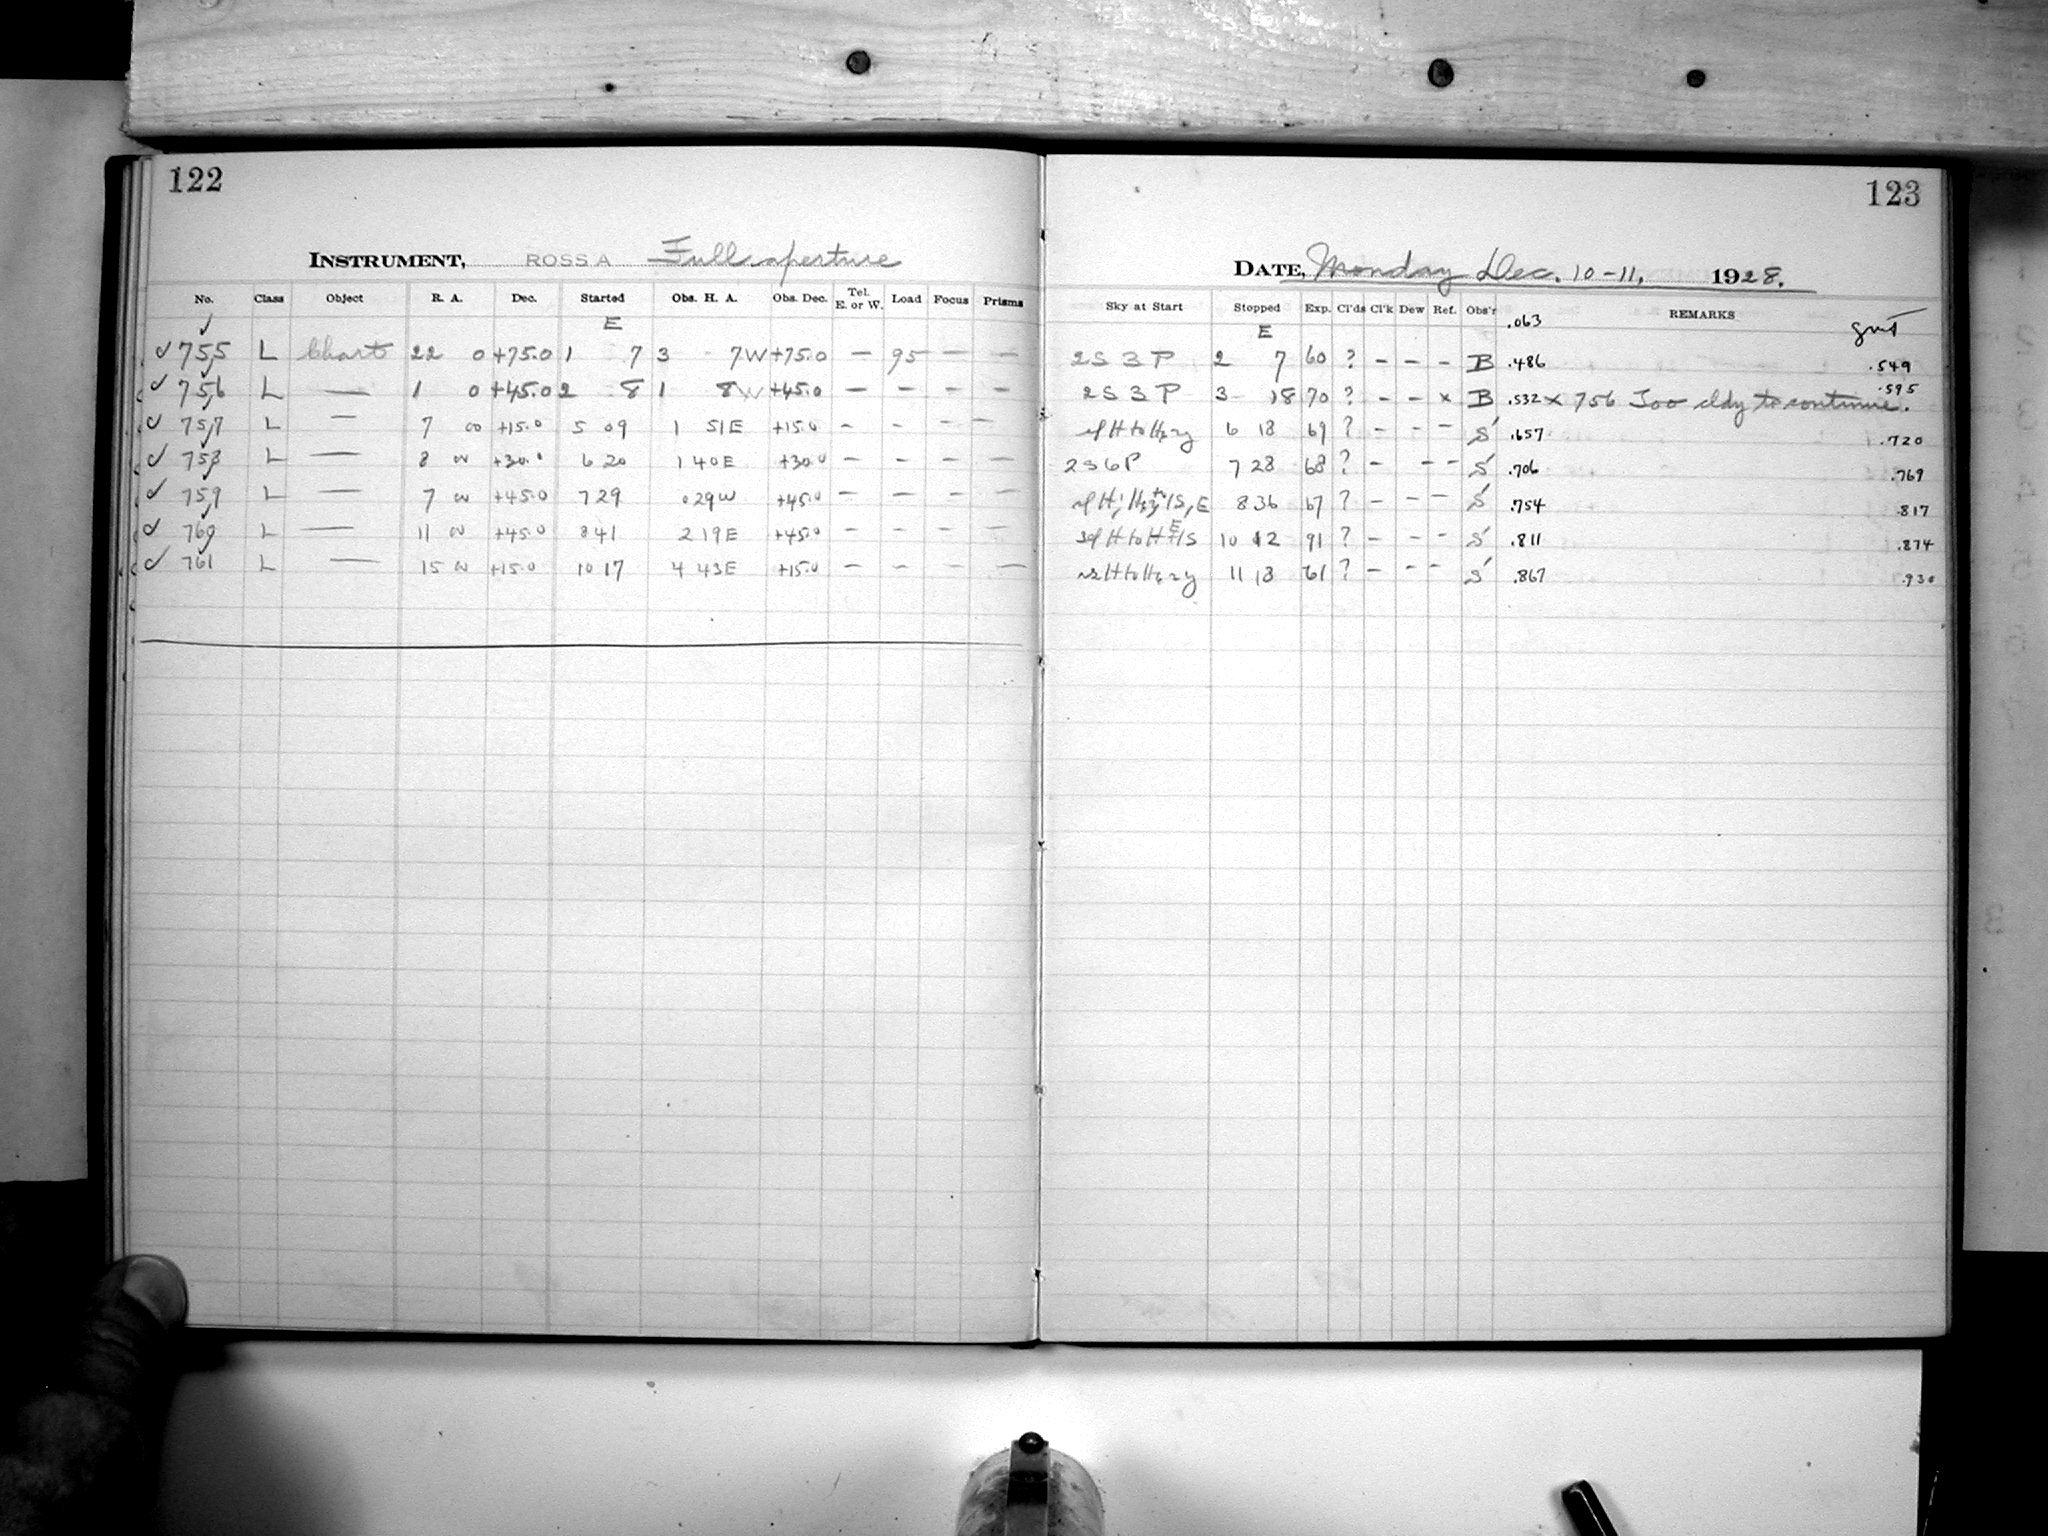 122
INSTRUMENT, ROSS A Full aperture
No. Class Object R. A. Dec. Started Obs. H. A. Obs. Dec. Tel. E. or W. Load Focus Prisms
E
✓ 755 L Chart 22 0 +75.0 1 7 3 7W +75.0 — 95 — —
✓ 756 L — 1 0 +45.0 2 8 1 8W +45.0 — — — —
✓ 757 L — 7 00 +15.0 5 09 1 51E +15.0 — — — —
✓ 758 L — 8 00 +30.0 6 20 1 40E +30.0 — — — —
✓ 759 L — 7 00 +45.0 7 29 0 29W +45.0 — — — —
✓ 760 L — 11 00 +45.0 8 41 2 19E +45.0 — — — —
✓ 761 L — 15 00 +15.0 10 17 4 43E +15.0 — — — —
123
DATE, Monday Dec. 10-11, 1928.
Sky at Start Stopped Exp. Cl'ds Cl'k Dew Ref. Obs'r REMARKS
E .063 GMT
2S 3P 2 7 60 ? – – – B .486 .549
2S 3P 3 18 70 ? – – x B .532 x 756 Too cldy to continue. .595
6 18 69 ? – – – S .657 .720
2S6P 7 28 68 ? – – – S .706 .769
8 36 67 ? – – – S .754 .817
10 12 91 ? – – – S .811 .874
11 18 61 ? – – – S .867 .930